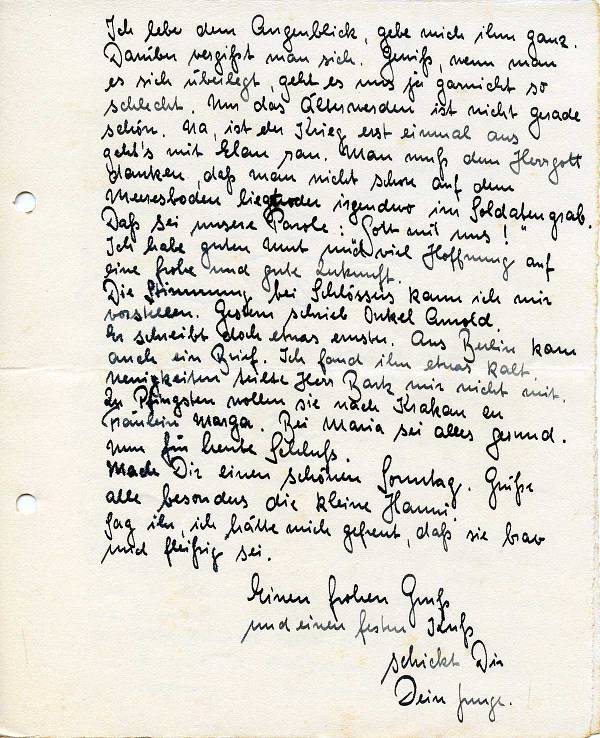 Ich lebe dem Augenblick, gebe mich ihm ganz.
Darüber vergißt man sich. Gewiß, wenn man
es sich überlegt, geht es uns ja garnicht so
schlecht. Nur das Älterwerden ist nicht gerade
schön. Na, ist der Krieg erst einmal aus
geht's mit Elan ran. Man muß dem Herrgott
danken, daß man nicht schon auf dem
Meeresboden liegt oder irgendwo im Soldatengrab.
Daß sei unsere Parole: "Gott mit uns!"
Ich habe guten Mut und viel Hoffnung auf
eine frohe und gute Zukunft.
Die Stimmung bei Schlössers kann ich mir
vorstellen. Gestern schrieb Onkel Arnold.
Er schreibt doch etwas ernster. Aus Berlin kam
auch ein Brief. Ich fand ihn etwas kalt.
Neuigkeiten teilte Herr Bartz mir nicht mit.
Zu Pfingsten wollen sie nach Krakau zu
Fräulein Marga. Bei Maria sei alles gesund.
Nun für heute Schluß.
Mach Dir einen schönen Sonntag. Grüße
alle besonders die kleine Hanni.
Sag ihr, ich hätte mich gefreut, daß sie brav
und fleißig sei.
Einen frohen Gruß
und einen festen Kuß
schickt Dir
Dein Junge.